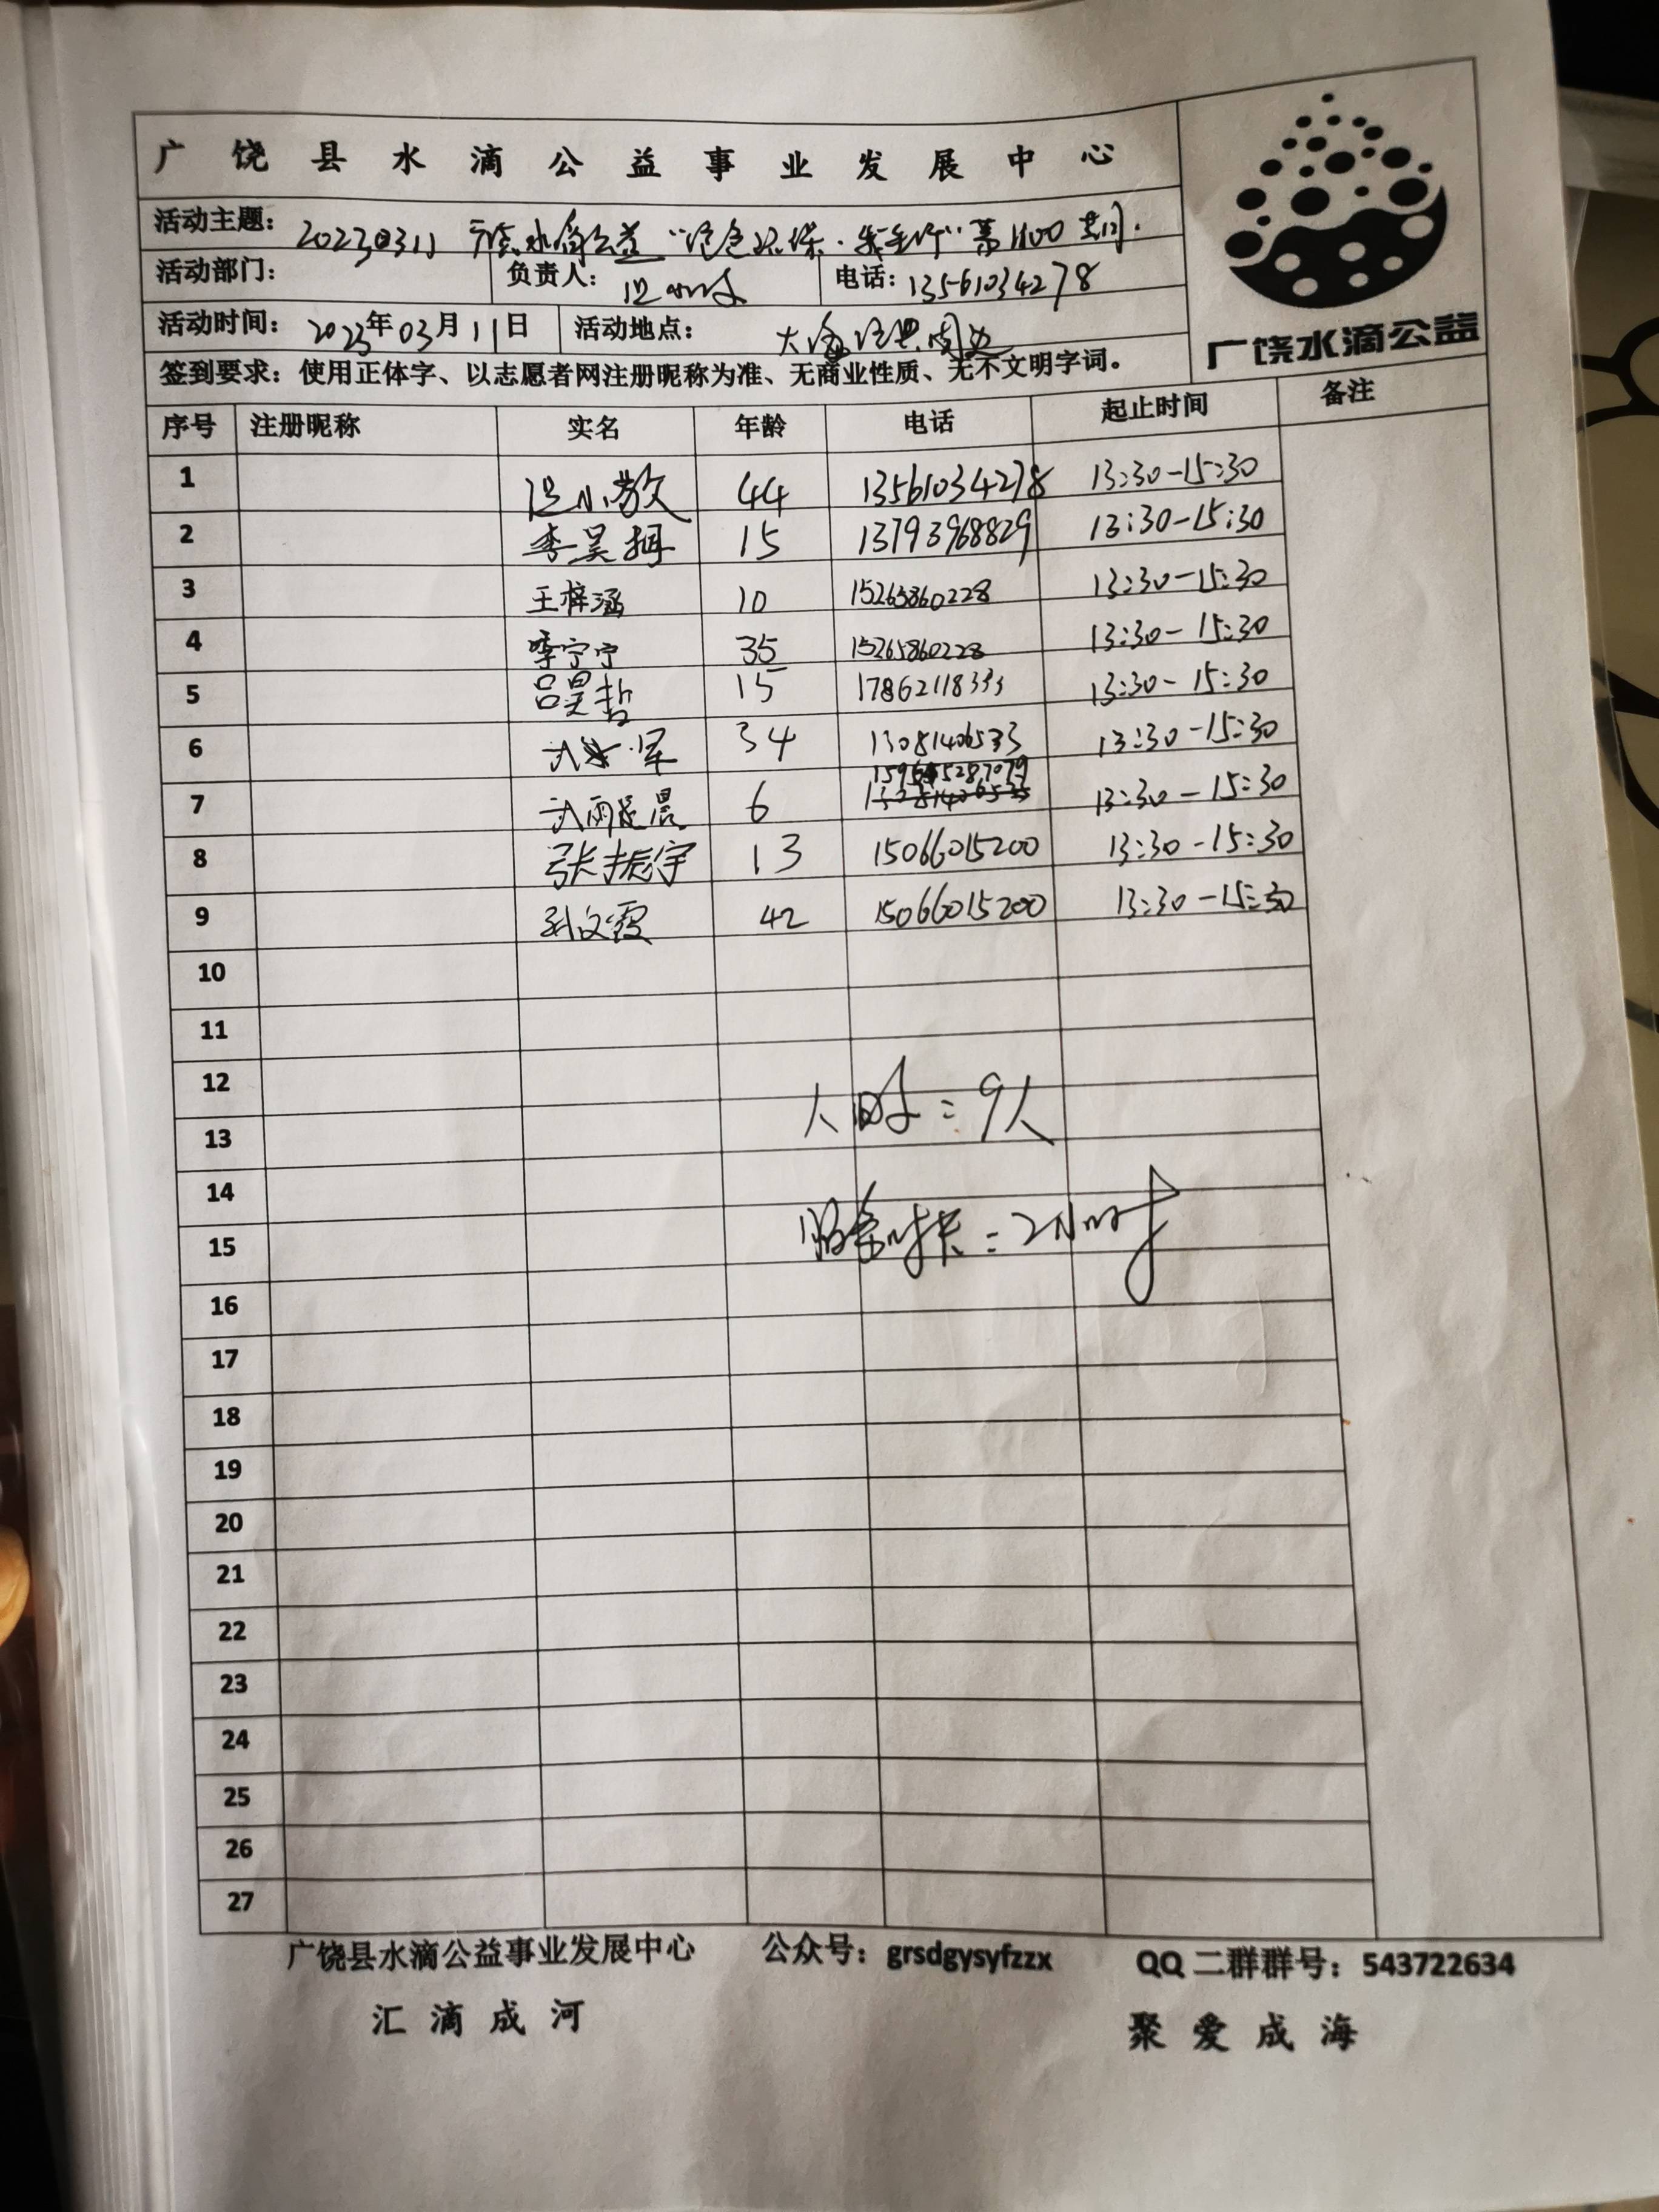 广饶县水滴公益事业发展中心
活动主题： 20230311 广饶水滴公益“绿色环保·我先行”第1100
活动部门： 负责人： 电话：13561034278
活动时间：2023年03月11日 活动地点： 大 周边
广饶水滴公益
签到要求：使用正体字、以志愿者网注册昵称为准、无商业性质、无不文明字词。
序号 注册昵称 实名 年龄 电话 起止时间 备注
1 小敏 44 13561034278 13:30-15:30
2 李昊 15 13793968829 13:30-15:30
3 王梓涵 10 15265860228 13:30-15:30
4 李宁宁 35 15265860228 13:30-15:30
5 吕昊哲 15 17862118333 13:30-15:30
6 武 军 34 13081406533 13:30-15:30
7 武雨晨 6 13:30-15:30
8 张振宇 13 15066015200 13:30-15:30
9 孙文霞 42 15066015200 13:30-15:30
10
11
12
人 =9人
13
14
服务时长=2小时
15
16
17
18
19
20
21
22
23
24
25
26
27
广饶县水滴公益事业发展中心 公众号：grsdgysyfzzx QQ 二群群号：543722634
汇滴成河 聚爱成海